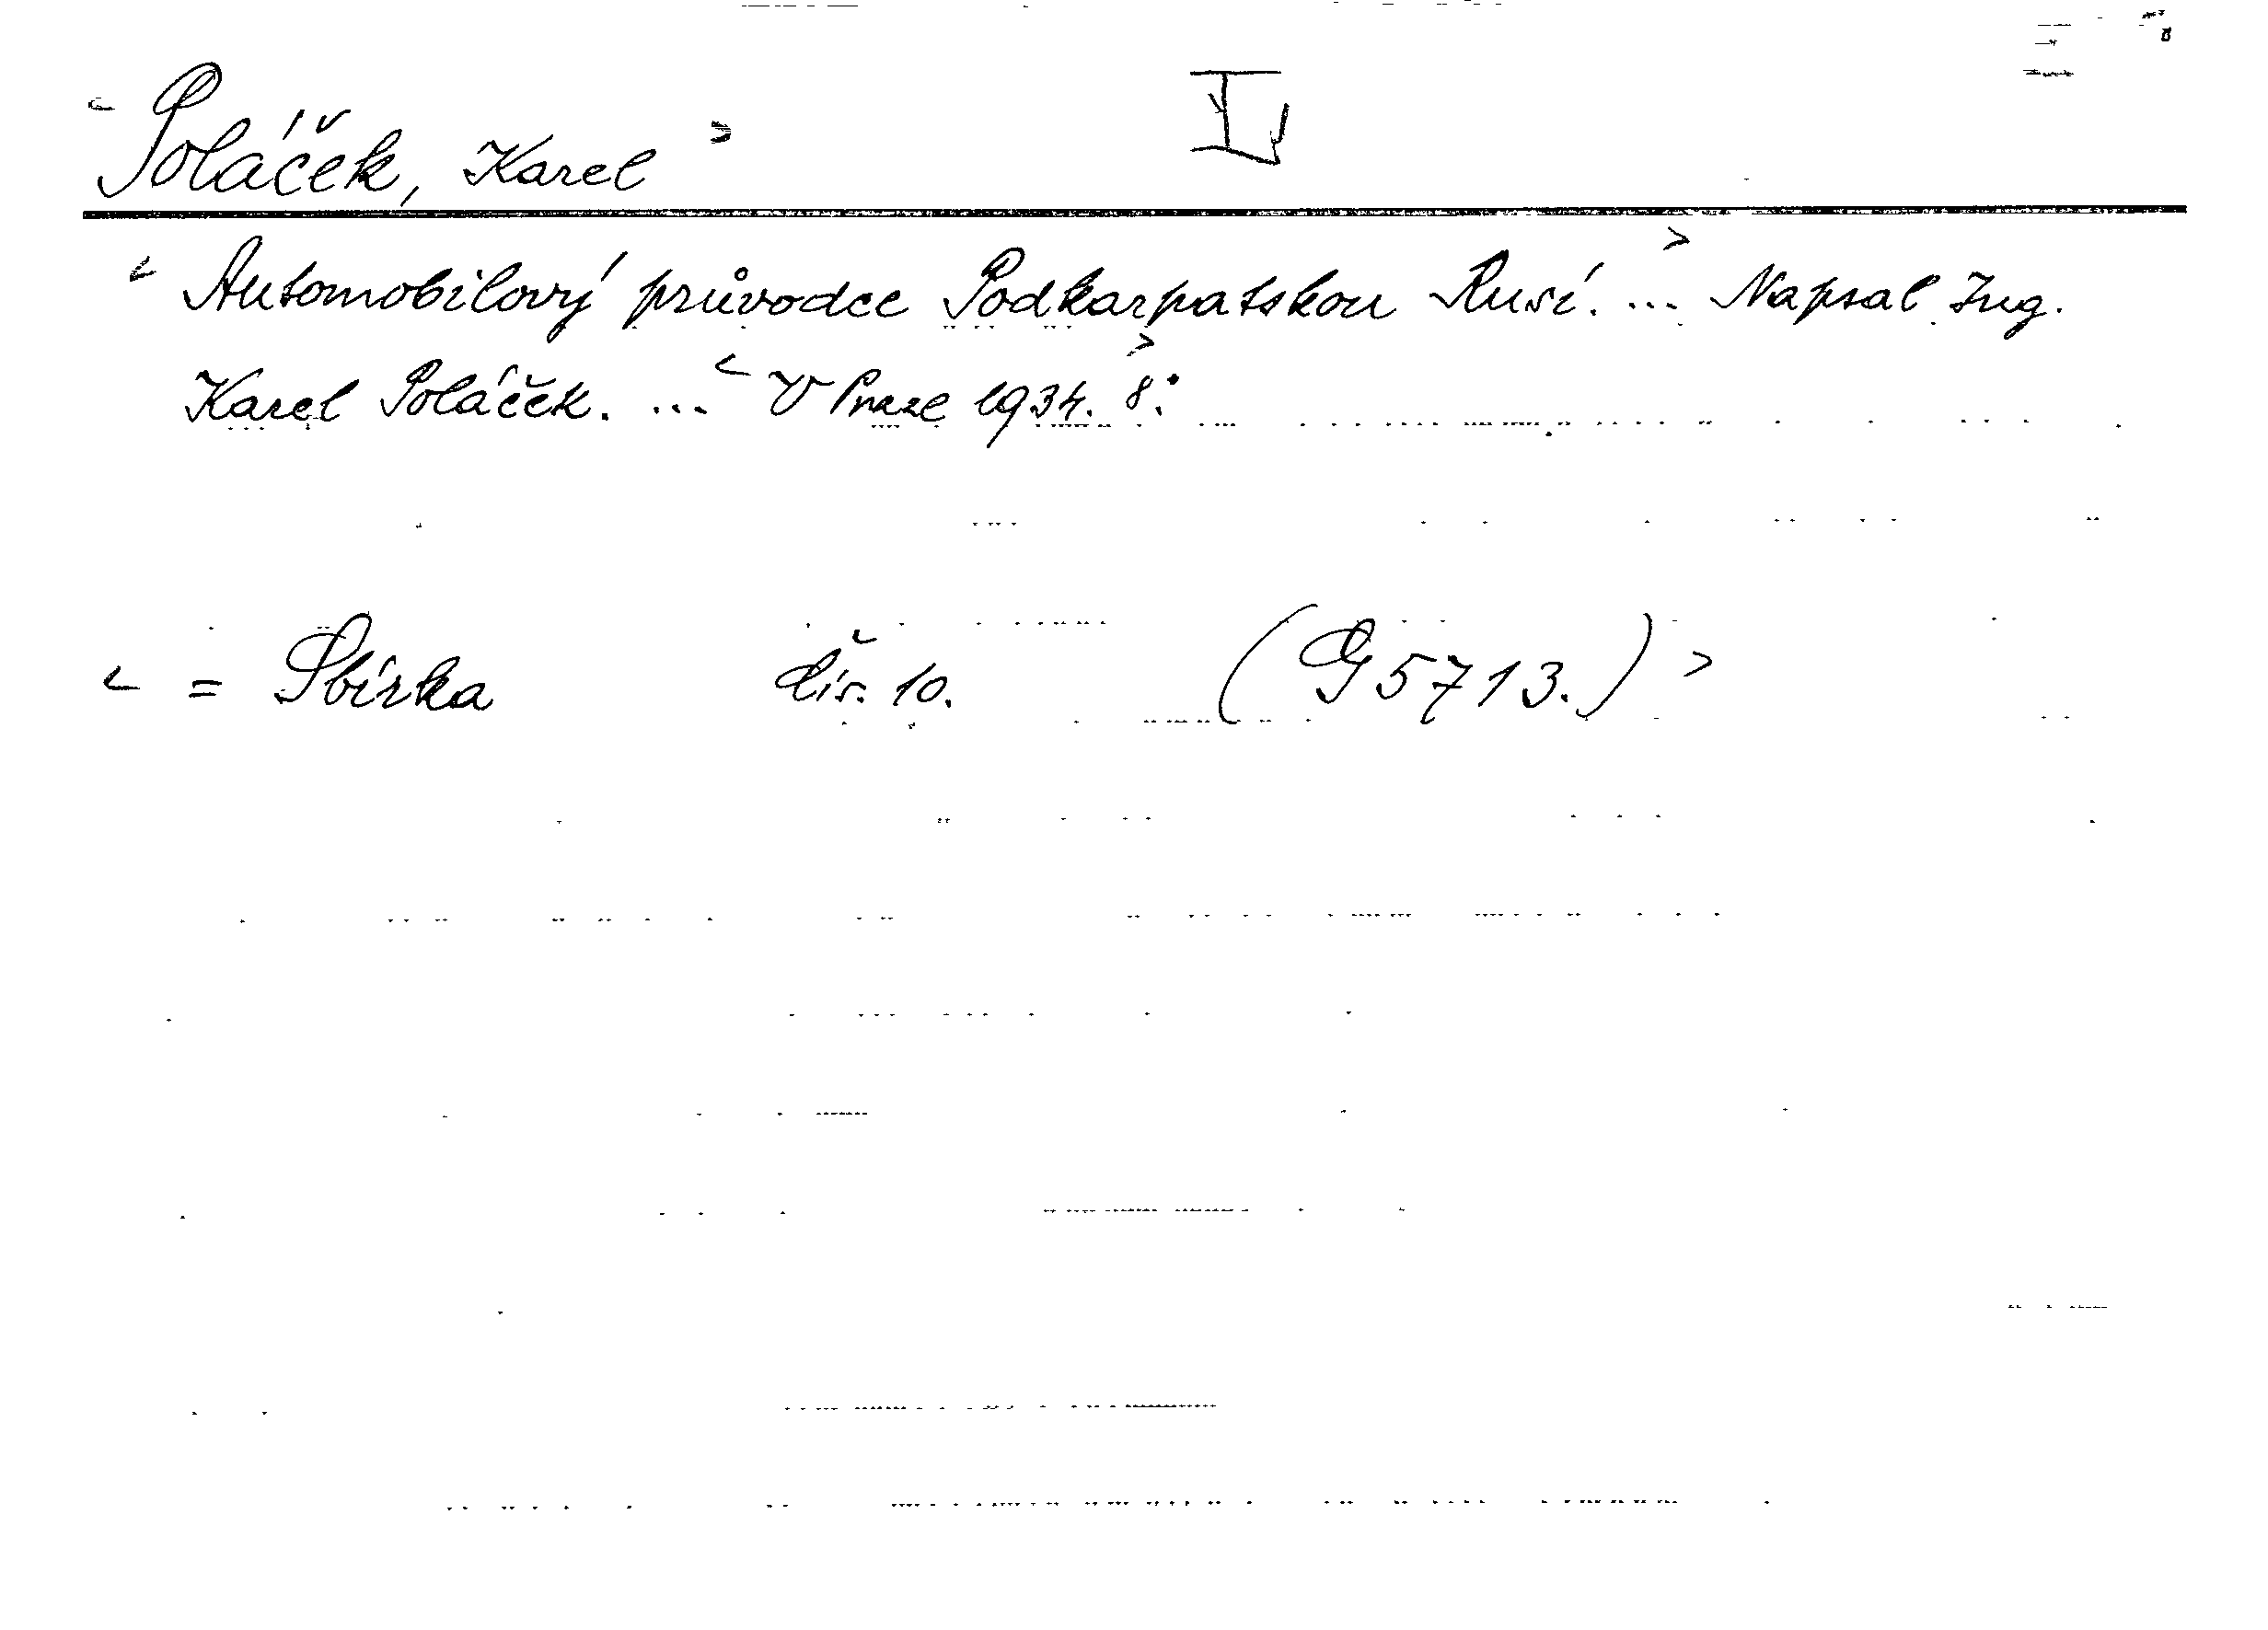 Poláček, Karel
Automobilový průvodce Podkarpatskou Rusí. ... Napsal Ing.
Karel Poláček. ... V Praze 1934. 8°.
= Sbírka čís. 10. (G 5713.)